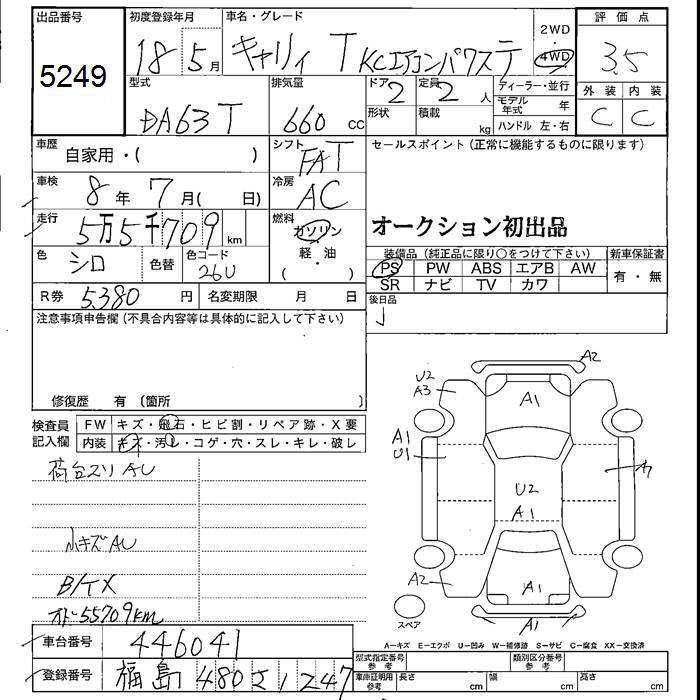 出品番号
5249
初度登録年月
18 5月
車名・グレード
キャリィ T KCエアコンパワステ
2WD
4WD
評価点
3.5
外装 内装
C C
型式
DA63T
排気量
660 cc
ドア
2
定員
2 人
形状
積載
kg
ディーラー・並行
モデル年式 年
ハンドル 左・右
車歴
自家用・( )
シフト
FAT
セールスポイント(正常に機能するものに限ります)
オークション初出品
車検
8年 7月( 日)
冷房
AC
走行
5万5千709 km
燃料
ガソリン
軽・油
( )
色
シロ
色替
色コード
26U
装備品(純正品に限り○をつけて下さい)
新車保証書
PS PW ABS エアB AW
SR ナビ TV カワ
有・無
R券 5,380 円
名変期限 月 日
後日品
注意事項申告欄(不具合内容等は具体的に記入して下さい)
修復歴 有 (箇所 )
検査員記入欄
FW キズ・飛石・ヒビ割・リペア跡・X要
内装 キズ・汚レ・コゲ・穴・スレ・キレ・破レ
荷台スリ AU
小キズ AU
B/TX
オドー55709km
車台番号
446041
登録番号
福島 480 え 1247
A2
U2
A3
A1
A1
U1
U2
A1
ワ
A2
A1
A1
スペア
A-キズ E-エクボ U-凹み W-補修跡 S-サビ C-腐食 XX-交換済
型式指定番号
参考
類別区分番号
参考
車庫証明用
参考
長さ cm
幅 cm
高さ cm